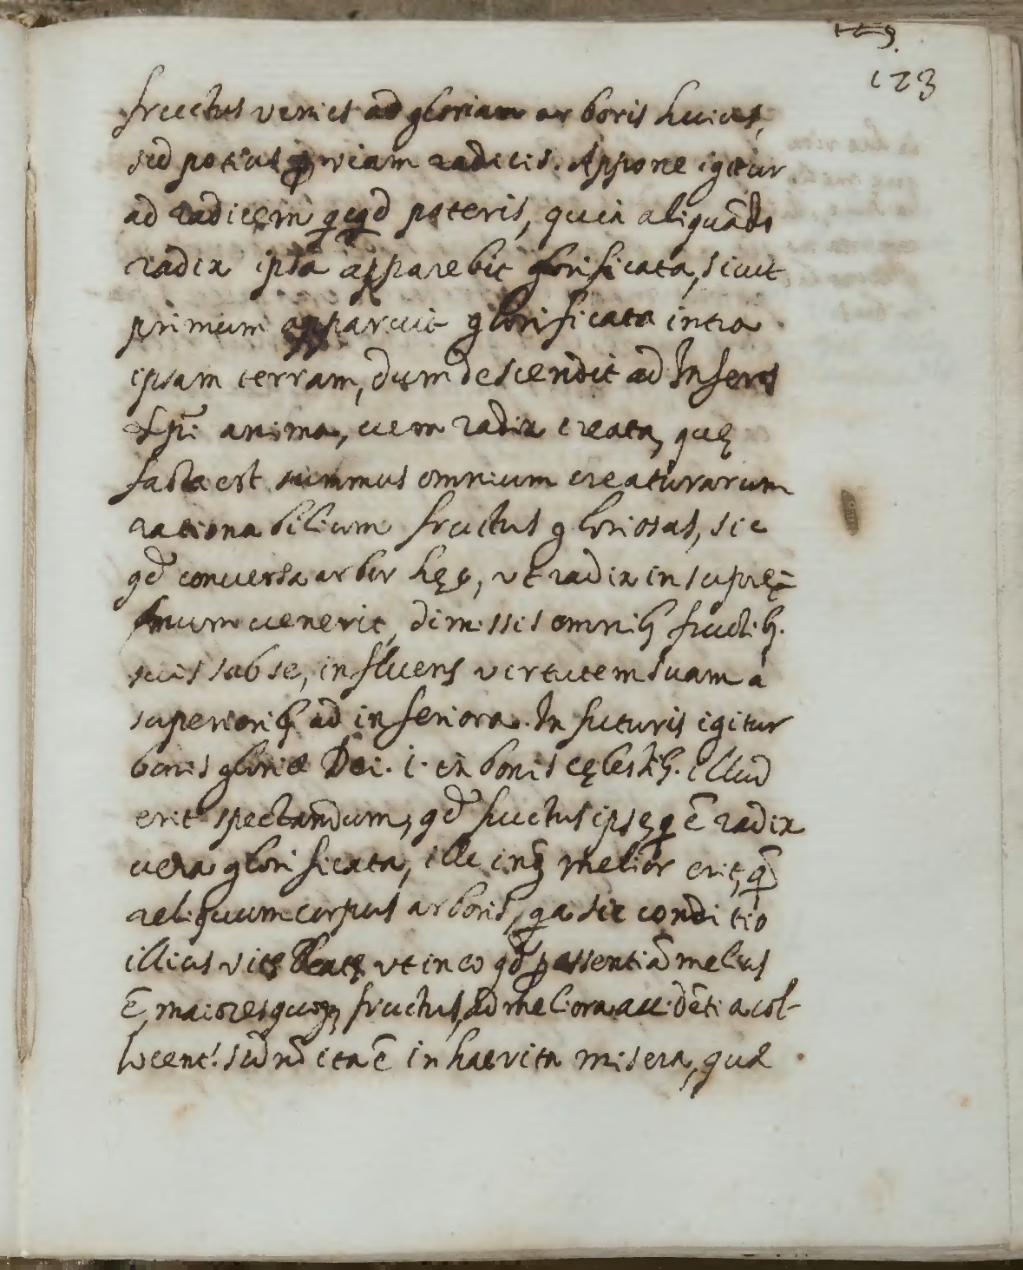 123
fructus veniet ad gloriam arboris huius,
sed potius p viam radicis. Appone igitur
ad radicem qcqd poteris, quia aliquādo
radix ipsa apparebit glorificata, sicut
primum apparuit glorificata intra
ipsam terram, dum descendit ad Inferos
Xpi anima, uera radix creata, quę
facta est summus omnium creaturarum
rationabilium fructus gloriosus, sic
qd conuersa arbor hęc, vt radix in suprę=
mum uenerit, dimissis omnib fructib.
suis sub se, influens virtutem suam a
superiorib ad inferiora. In futuris igitur
bonis gloriæ Dei .i. in bonis cęlestib. illud
erit spectandum, qd fructus ipse, q ē radix
uera glorificata, ille inq melior erit, q̄
reliquum corpus arboris, qa sic conditio
illius vitę beatę vt in eo qd p essentiā melius
ē, maiores quoq fructus, ad meliora accidētia col-
locent. sed nō ita ē in hac vita misera, quæ